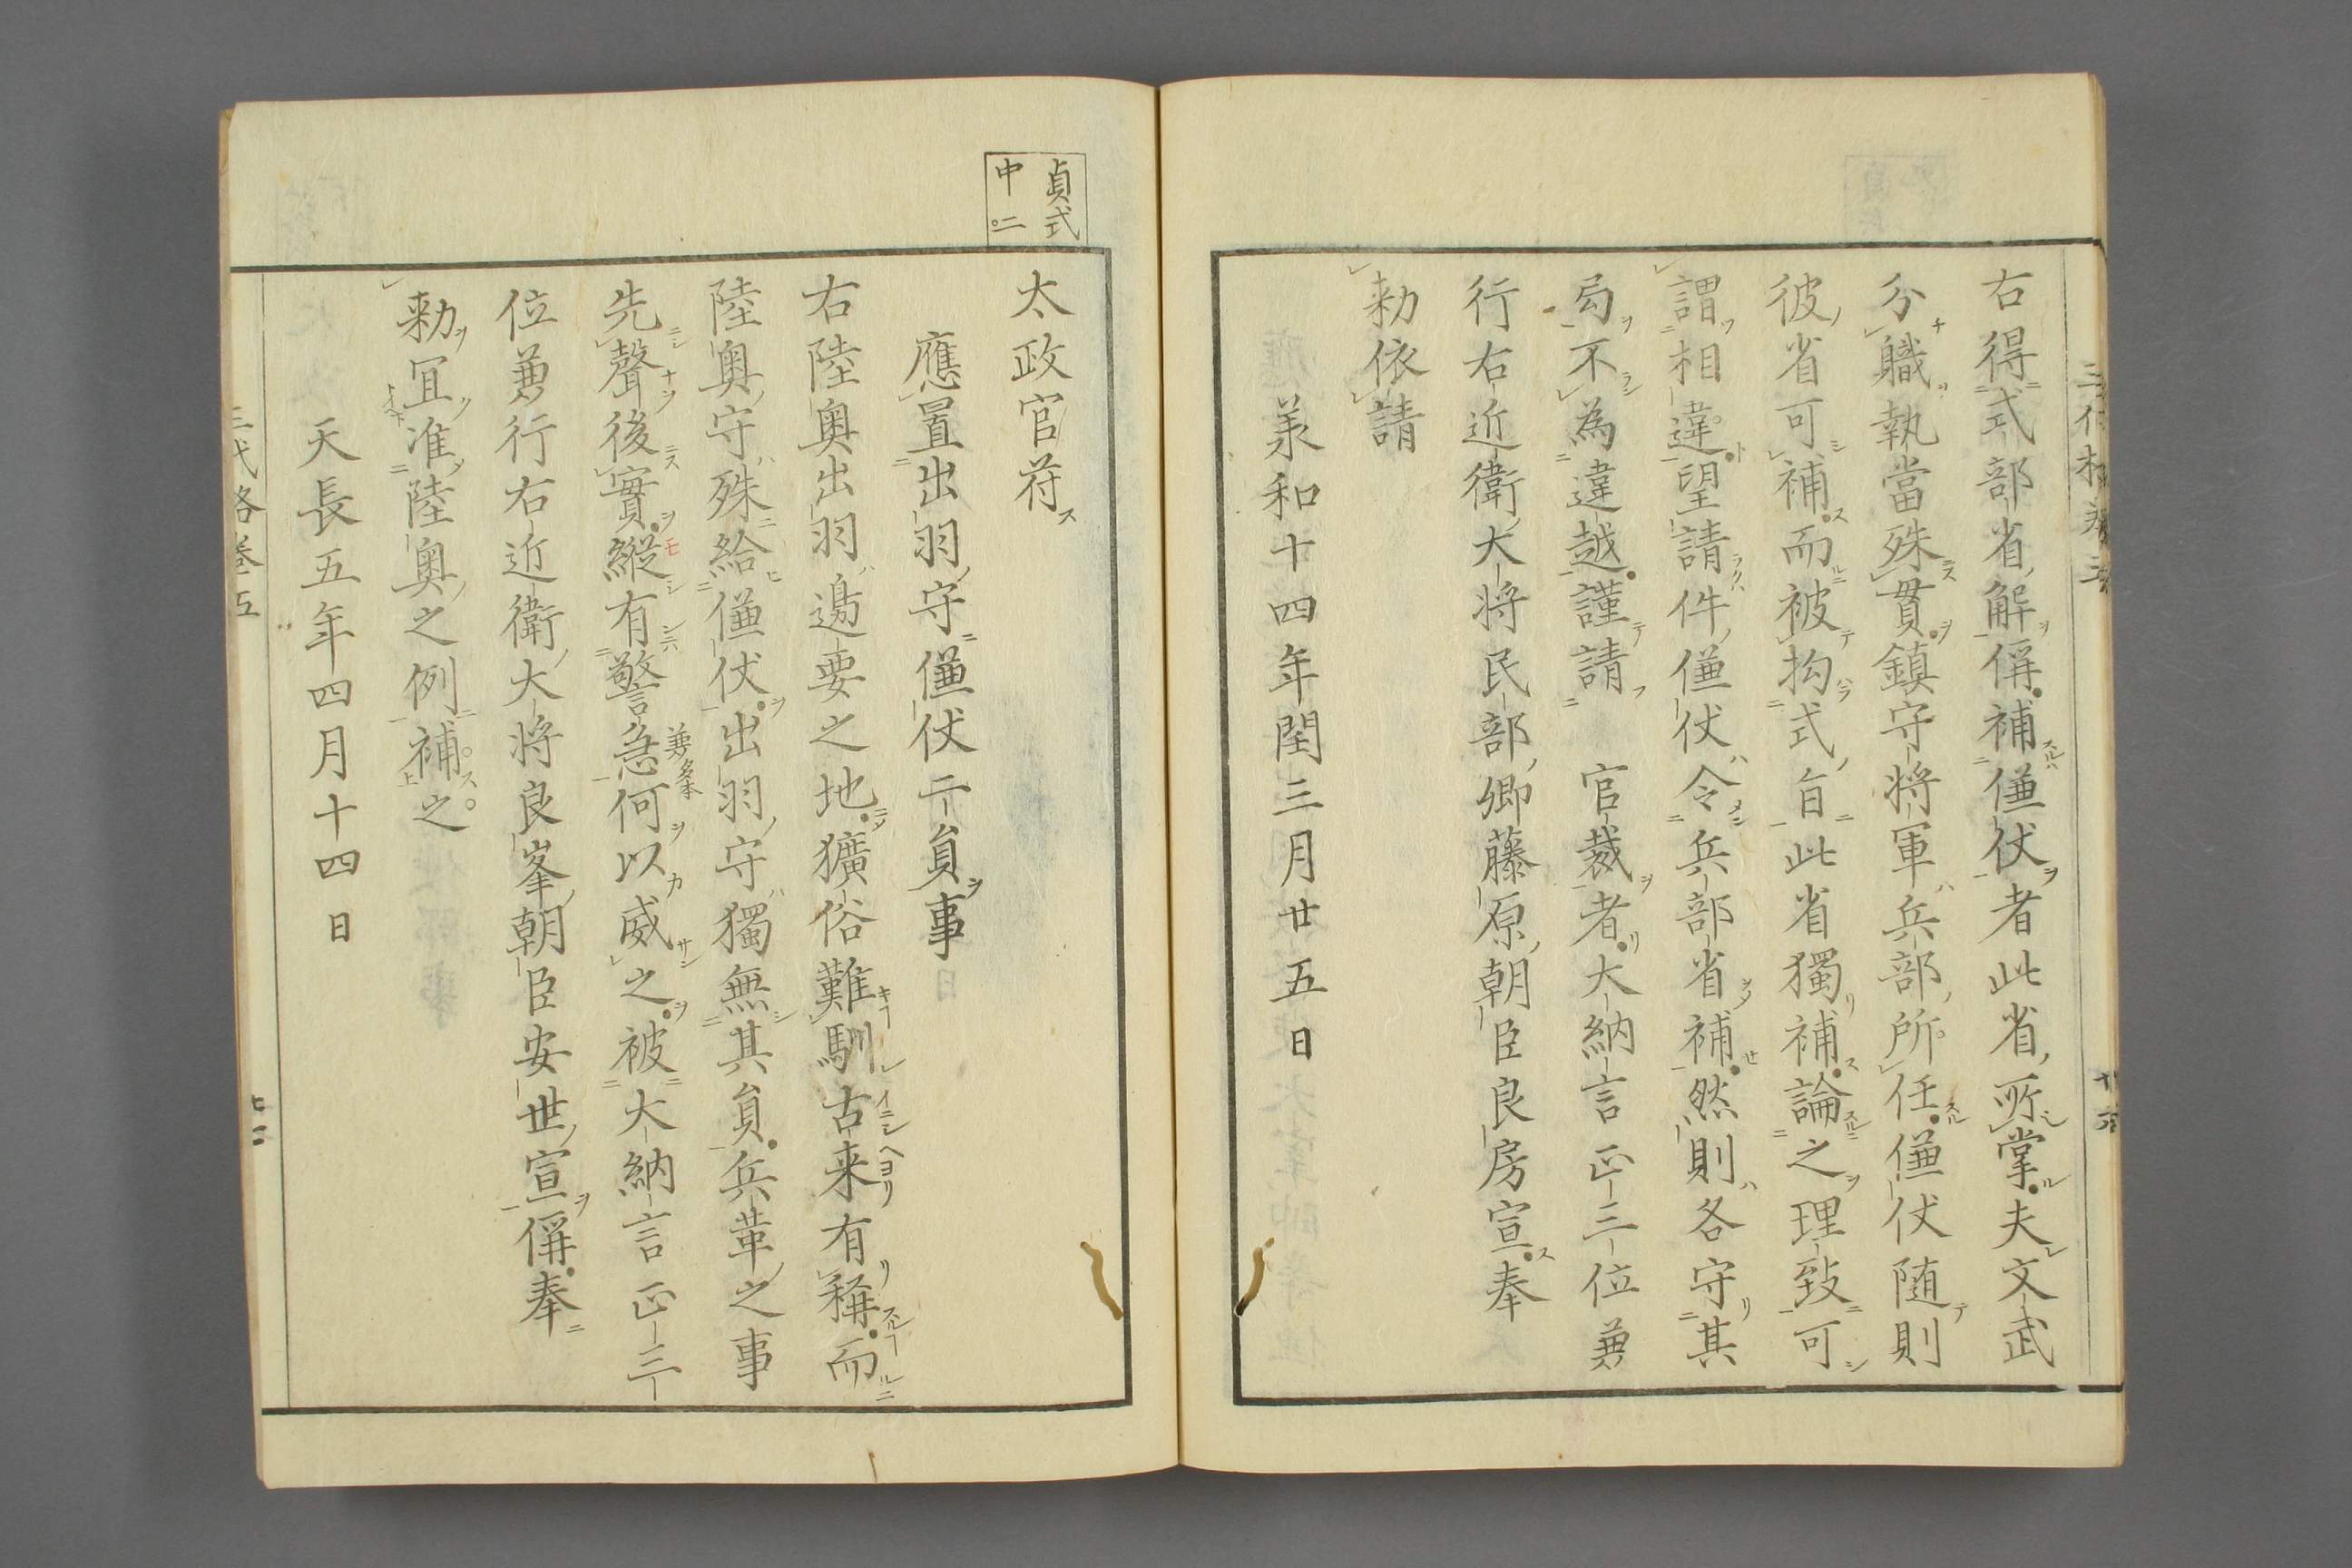 右得式部省解偁補傔仗者此省所掌夫文武
分職執當殊貫鎮守将軍兵部所任傔仗随則
彼省可補而被拘式旨此省獨補論之理致可
謂相違望請件傔仗令兵部省補然則各守其
局不為違越謹請　官裁者大納言正三位兼
行右近衛大将民部卿藤原朝臣良房宣奉
勅依請
承和十四年閏三月廿五日
貞式
中二
太政官符
應置出羽守傔仗二員事
右陸奥出羽邊要之地獷俗難馴古来有稱而
陸奥守殊給傔仗出羽守獨無其員兵革之事
先聲後實縦有警急何以威之被大納言正三
位兼行右近衛大将良峯朝臣安世宣偁奉
勅宜准陸奥之例補之
天長五年四月十四日